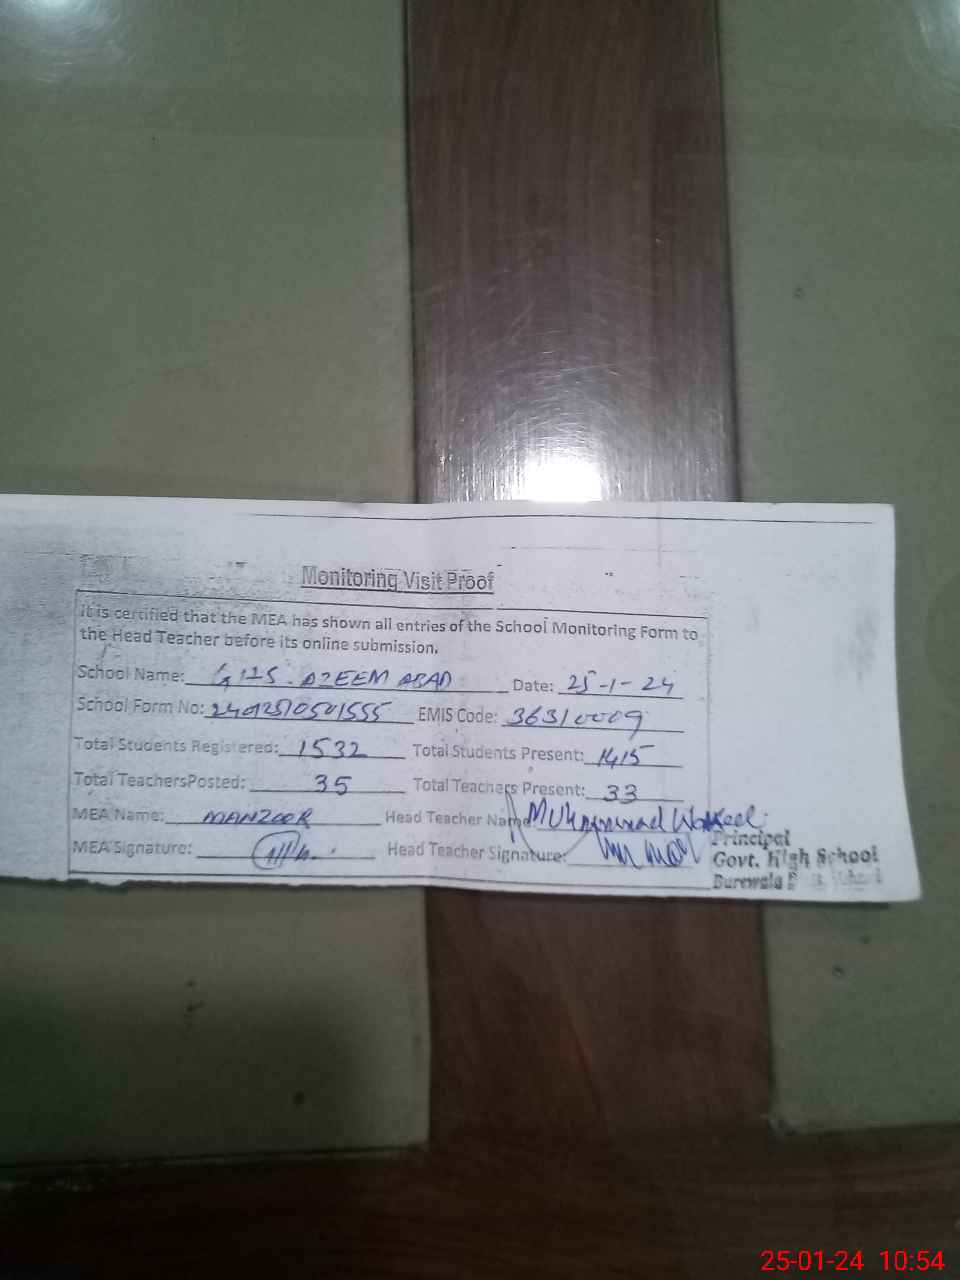 Monitoring Visit Proof
It is certified that the MEA has shown all entries of the School Monitoring Form to
the Head Teacher before its online submission.
School Name: GHS. AZEEM ABAD Date: 25-1-24
School Form No: EMIS Code: 36310009
Total Students Registered: 1532 Total Students Present: 1415
Total TeachersPosted: 35 Total Teachers Present: 33
MEA Name: MANZOOR Head Teacher Name: Muhammad Wakeel
MEA Signature: Head Teacher Signature:
Principal
Govt. High School
Burewala
25-01-24 10:54